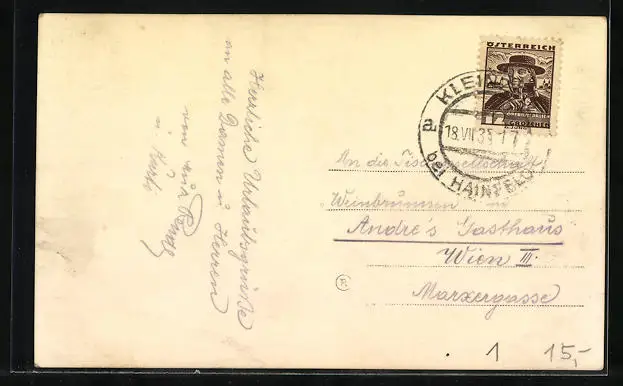 Herrliche Urlaubsgrüße
an alle Damen u. Herren
von
u.
ÖSTERREICH
12 GROSCHEN
KLEIN
a
18.VII.35 17
bei HAINFELD
An die Tischgesellschaft
Weinbrunnen
Andre's Gasthaus
Wien III.
Marxergasse
1 15,-